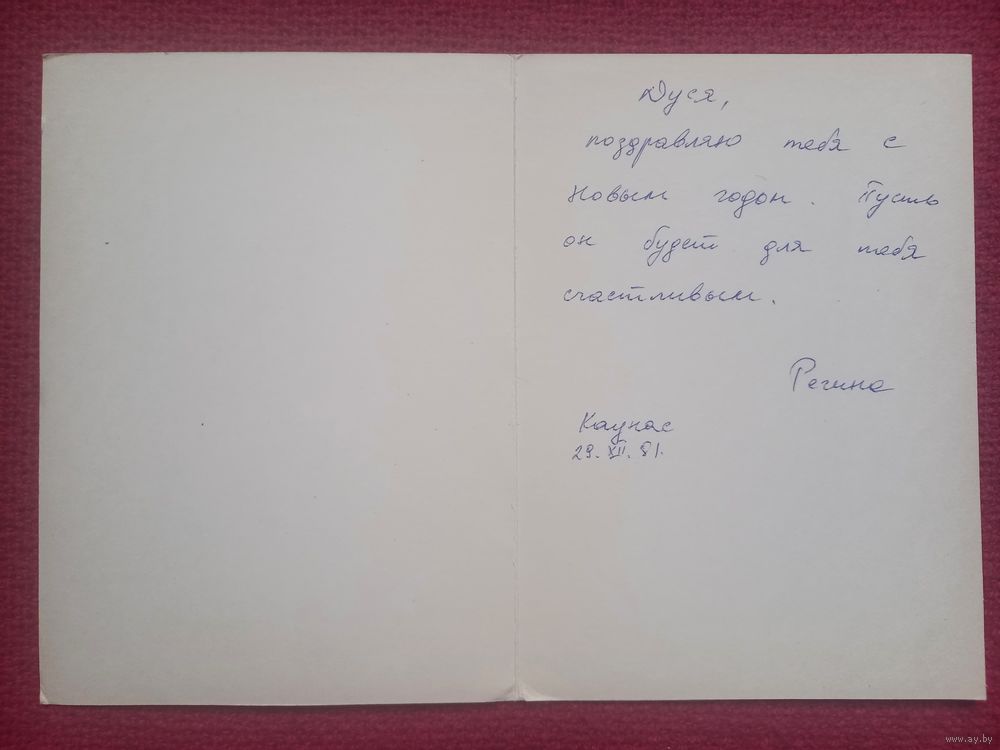 Дуся,
поздравляю тебя с
Новым годом. Пусть
он будет для тебя
счастливым.
Регина
Каунас
29. XII. 81.
www.ay.by